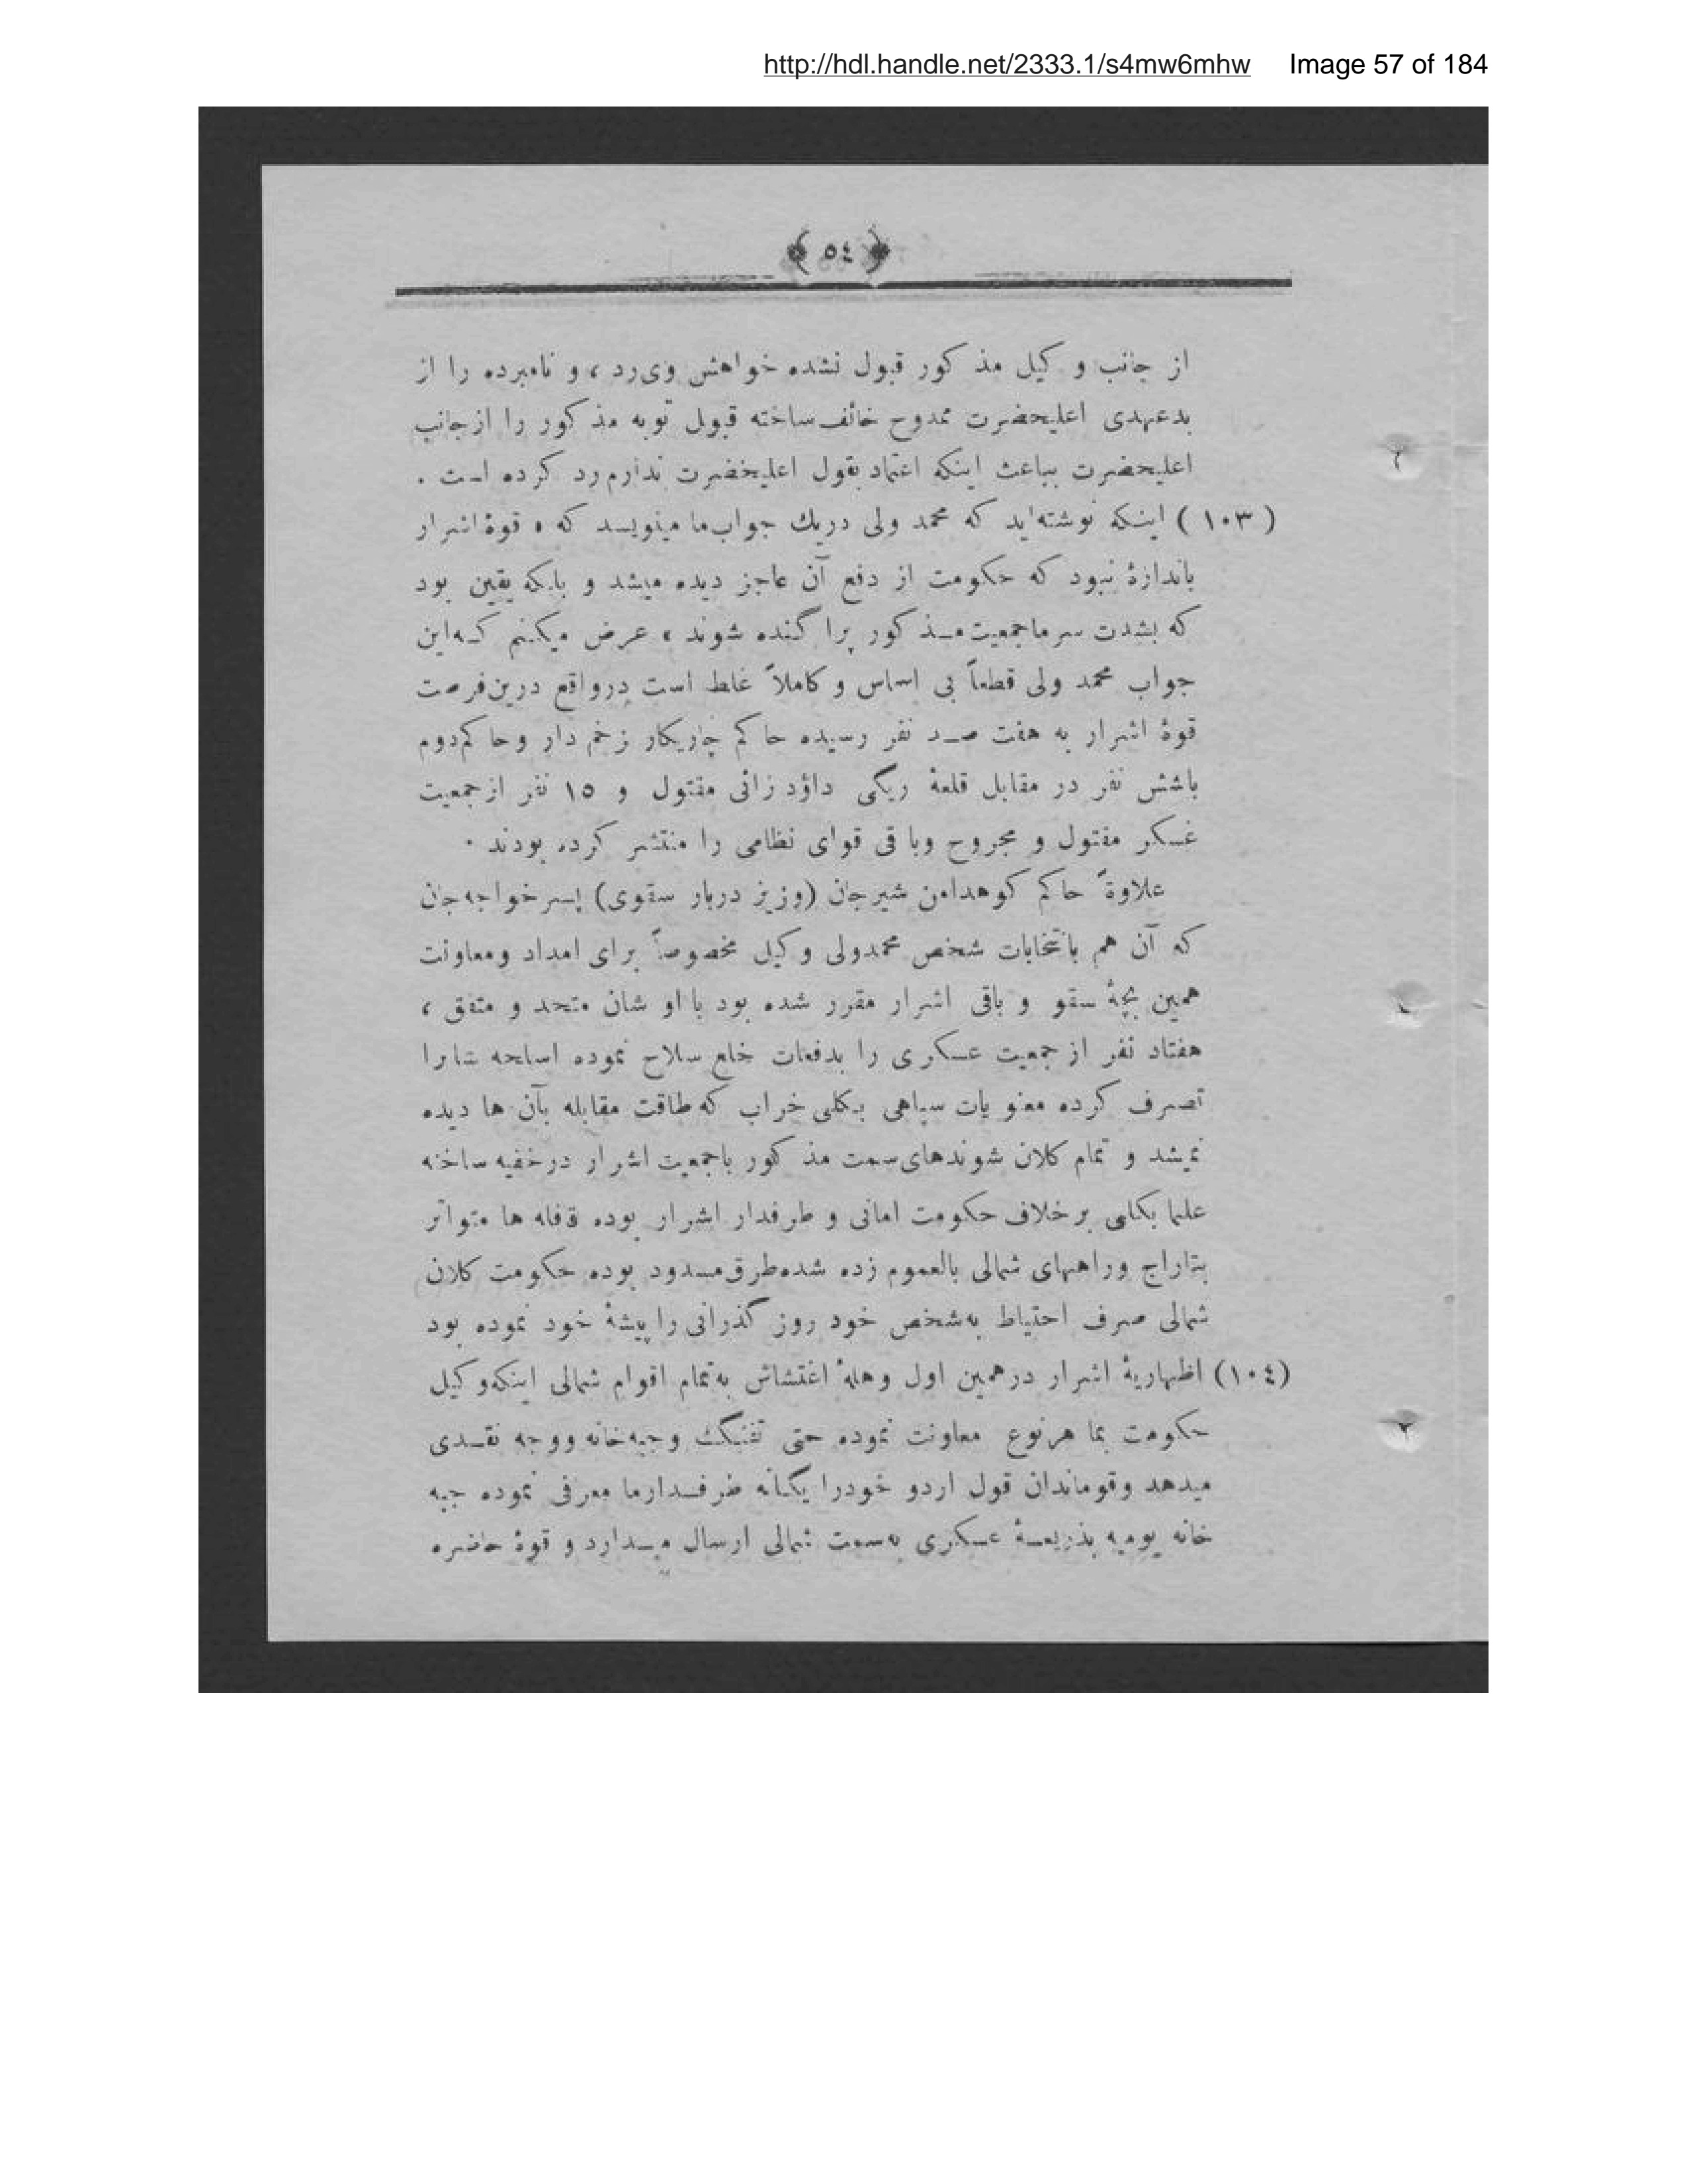 http://hdl.handle.net/2333.1/s4mw6mhw Image 57 of 184
﴿ ٥٤ ﴾
از جانب و کیل مذ کور قبول نشده خواهش وی‌رد ، و نامبرده را از
بدعهدی اعلیحضرت ممدوح خائف ساخته قبول توبه مذ کور را از جانب
اعلیحضرت بباعث اینکه اعتماد بقول اعلیحضرت ندارم رد کرده است .
( ۱۰۳ ) اینکه نوشته‌اید که محمد ولی دریك جواب‌ما مینویسد که « قوهٔ اشرار
باندازهٔ نبود که حکومت از دفع آن عاجز دیده میشد و بابکه یقین بود
که بشدت سرما جمعیت مـذ کور پرا گنده شوند ، عرض میکنم کـه این
جواب محمد ولی قطعاً بی اساس و کاملاً غلط است درواقع درین فرصت
قوهٔ اشرار به هفت صـد نفر رسیده حا کم چاریکار زخم دار و حا کم دوم
باشش نفر در مقابل قلعهٔ ریگی داؤد زائی مقتول و ۱٥ نفر از جمعیت
عسکر مقتول و مجروح وبا قی قوای نظامی را منتشر کرده بودند .
علاوةً حاکم کوهدامن شیرجان (وزیر دربار سقوی) پسر خواجه‌جان
که آن هم بانتخابات شخص محمدولی وکیل مخصوصاً برای امداد ومعاونت
همین بچهٔ سقو و باقی اشرار مقرر شده بود با او شان متحد و متفق ،
هفتاد نفر از جمعیت عسکری را بدفعات خلع سلاح نموده اسلحه شانرا
تصرف کرده معنو یات سپاهی بکلی خراب که طاقت مقابله بآن ها دیده
نمیشد و تمام کلان شوندهای‌سمت مذ کور باجمعیت اشرار درخفیه ساخته
علما بکلی بر خلاف حکومت امانی و طرفدار اشرار بوده قافله ها متواتر
بتاراج وراههای شمالی بالعموم زده شده‌طرق‌مسدود بوده حکومت کلان
شمالی صرف احتیاط به‌شخص خود روز گذرانی را پیشهٔ خود نموده بود
(۱۰٤) اظهاریهٔ اشرار درهمین اول وهلهٔ اغتشاش به‌تمام اقوام شمالی اینکه‌و کیل
حکومت بما هرنوع معاونت نموده حتی تفنگ وجبه‌خانه ووجه نقـدی
میدهد وقوماندان قول اردو خودرا یگانه طرفـدارما معرفی نموده جبه
خانه یومیه بذریعـهٔ عسکری به‌سمت شمالی ارسال میـدارد و قوهٔ حاضره